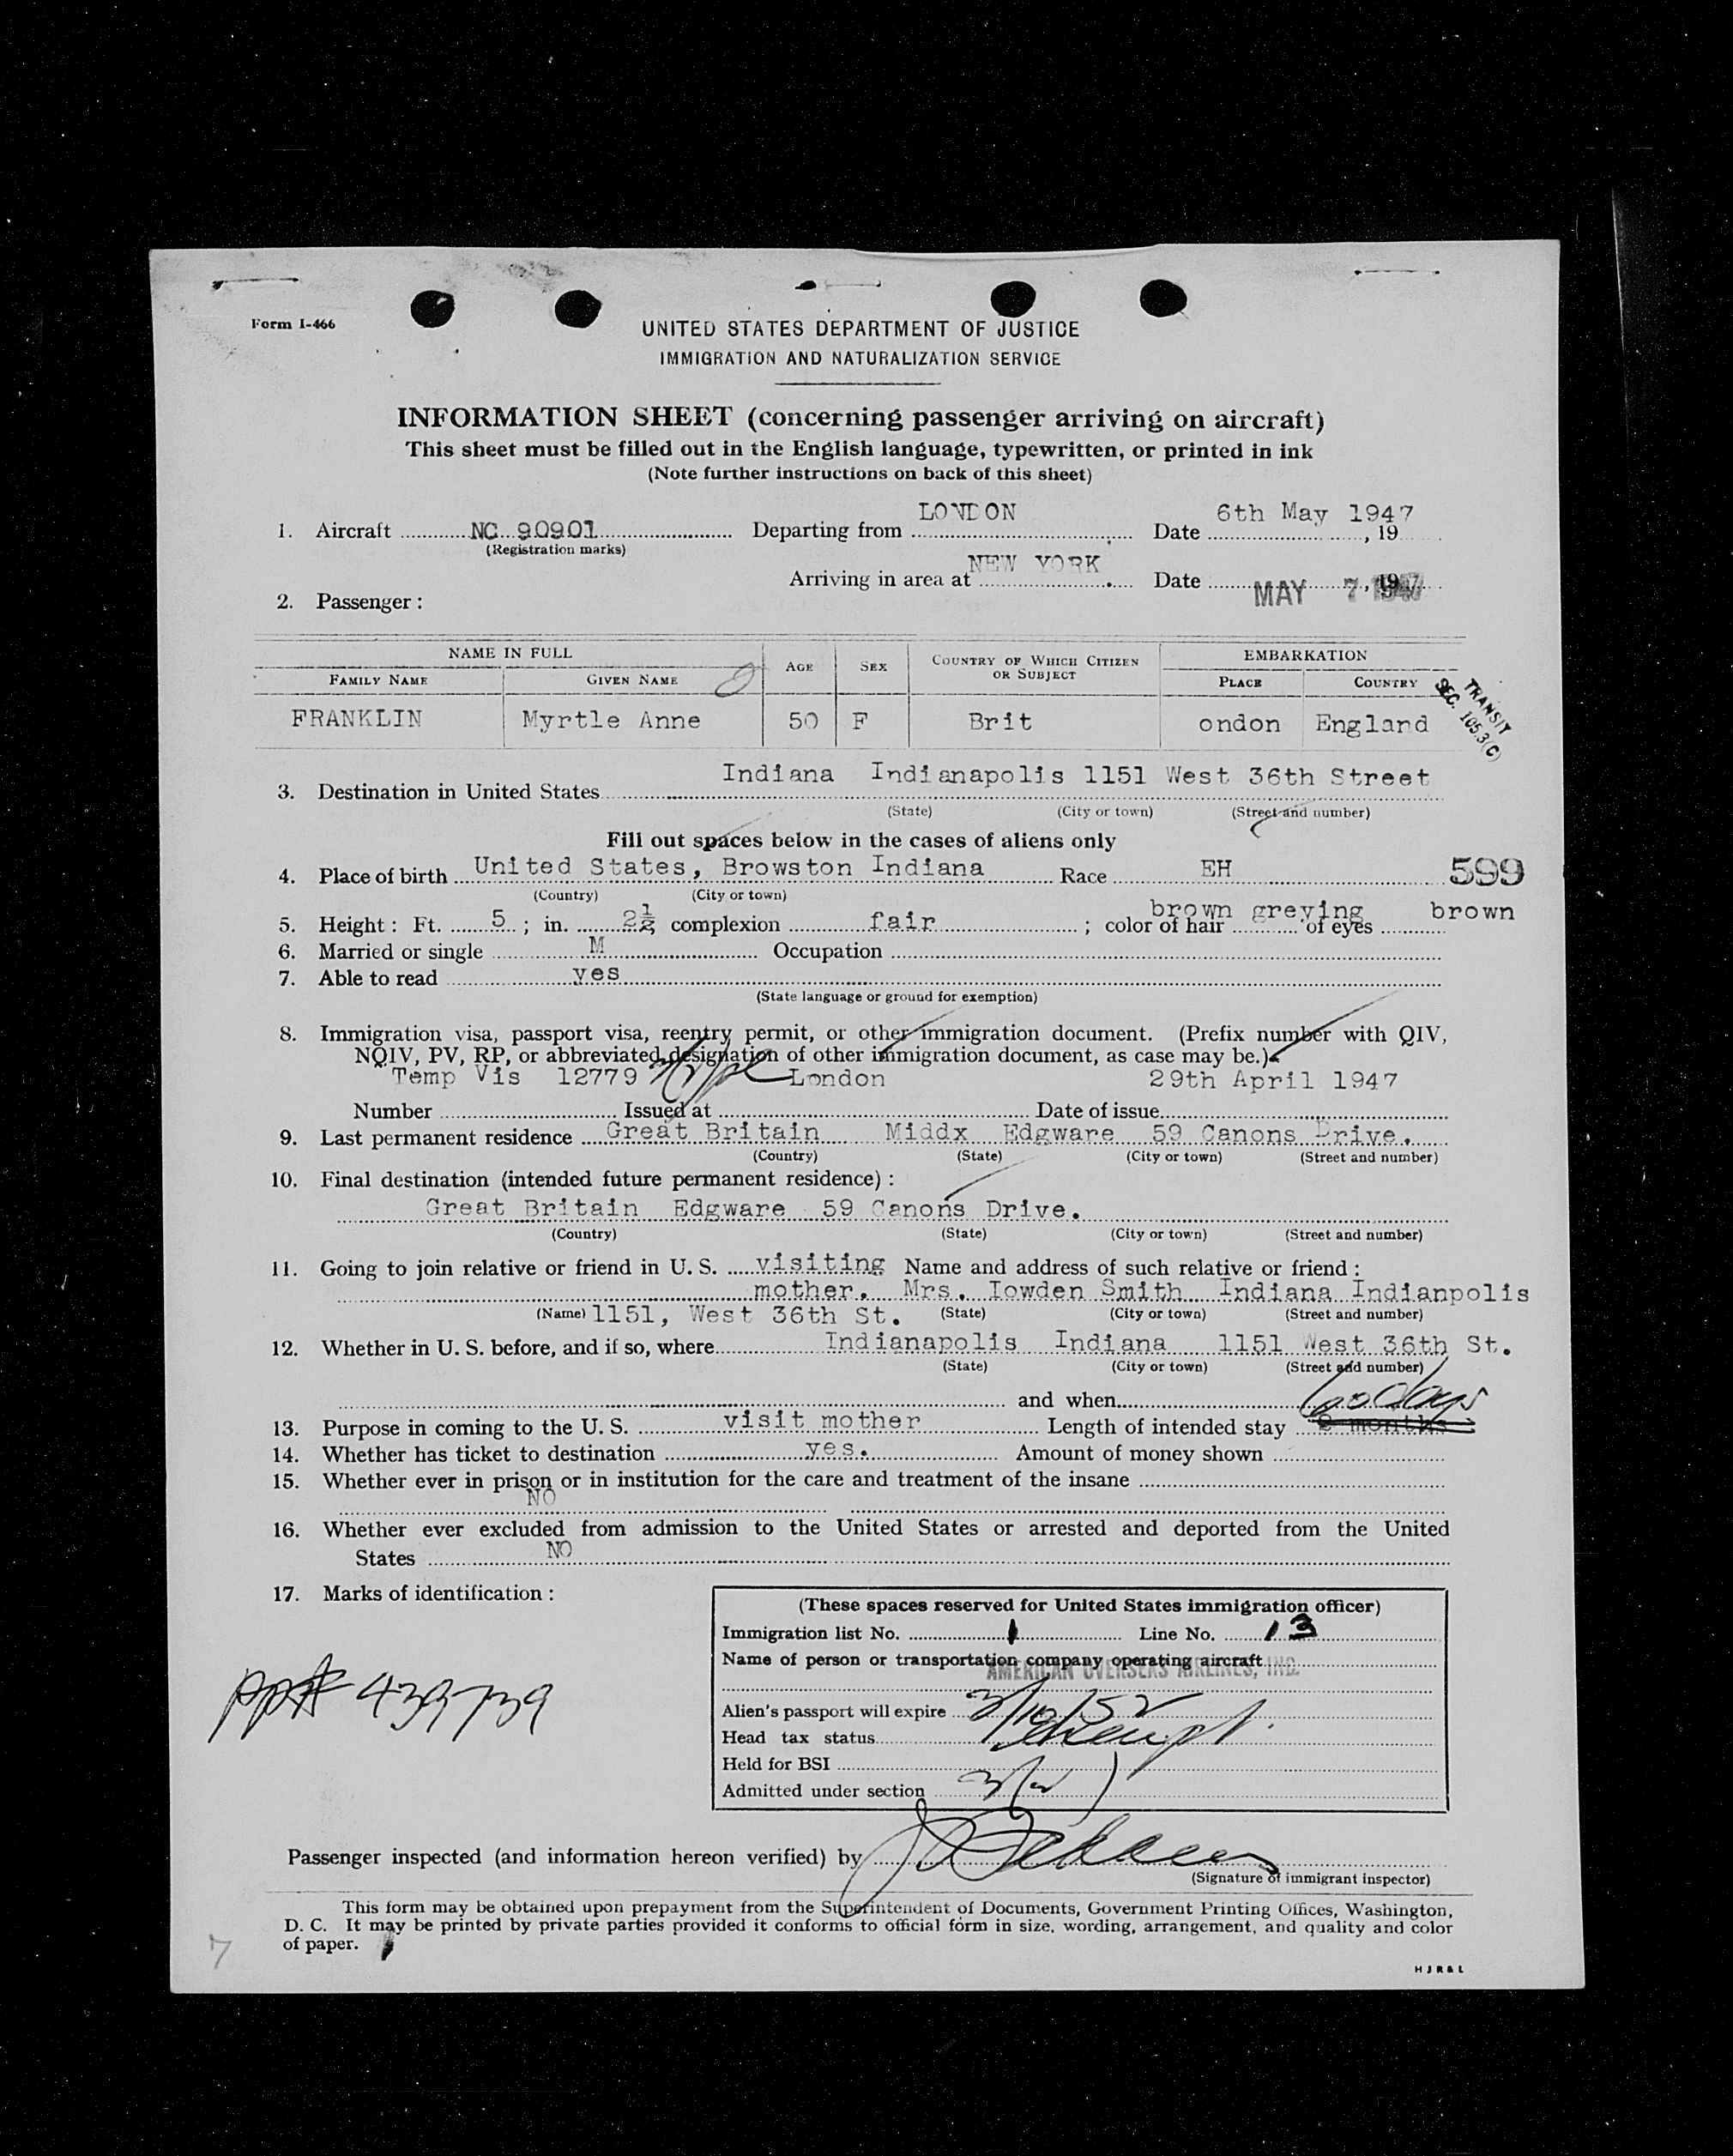 Form I-466
UNITED STATES DEPARTMENT OF JUSTICE
IMMIGRATION AND NATURALIZATION SERVICE
INFORMATION SHEET (concerning passenger arriving on aircraft)
This sheet must be filled out in the English language, typewritten, or printed in ink
(Note further instructions on back of this sheet)
1. Aircraft NC 90901 Departing from LONDON Date 6th May 1947, 19
(Registration marks)
Arriving in area at NEW YORK Date MAY 7, 1947
2. Passenger:
NAME IN FULL AGE SEX COUNTRY OF WHICH CITIZEN OR SUBJECT EMBARKATION
FAMILY NAME GIVEN NAME PLACE COUNTRY
FRANKLIN Myrtle Anne 50 F Brit ondon England
TRANSIT
SEC. 105.3(C)
3. Destination in United States Indiana Indianapolis 1151 West 36th Street
(State) (City or town) (Street and number)
Fill out spaces below in the cases of aliens only
4. Place of birth United States, Browston Indiana Race EH 599
(Country) (City or town)
5. Height: Ft. 5; in. 2½ complexion fair; color of hair brown greying of eyes brown
6. Married or single M Occupation
7. Able to read yes
(State language or ground for exemption)
8. Immigration visa, passport visa, reentry permit, or other immigration document. (Prefix number with QIV,
NQIV, PV, RP, or abbreviated designation of other immigration document, as case may be.)
Temp Vis 12779 London 29th April 1947
Number Issued at Date of issue
9. Last permanent residence Great Britain Middx Edgware 59 Canons Drive.
(Country) (State) (City or town) (Street and number)
10. Final destination (intended future permanent residence):
Great Britain Edgware 59 Canons Drive.
(Country) (State) (City or town) (Street and number)
11. Going to join relative or friend in U. S. visiting Name and address of such relative or friend:
mother. Mrs. Iowden Smith Indiana Indianpolis
(Name) 1151, West 36th St. (State) (City or town) (Street and number)
12. Whether in U. S. before, and if so, where Indianapolis Indiana 1151 West 36th St.
(State) (City or town) (Street and number)
and when 60 days
13. Purpose in coming to the U. S. visit mother Length of intended stay months
14. Whether has ticket to destination yes. Amount of money shown
15. Whether ever in prison or in institution for the care and treatment of the insane
NO
16. Whether ever excluded from admission to the United States or arrested and deported from the United
States NO
17. Marks of identification:
pp# 439739
(These spaces reserved for United States immigration officer)
Immigration list No. 1 Line No. 13
Name of person or transportation company operating aircraft
AMERICAN OVERSEAS AIRLINES, INC.
Alien's passport will expire 3/10/52
Head tax status Exempt.
Held for BSI
Admitted under section 3(2)
Passenger inspected (and information hereon verified) by
(Signature of immigrant inspector)
This form may be obtained upon prepayment from the Superintendent of Documents, Government Printing Offices, Washington,
D. C. It may be printed by private parties provided it conforms to official form in size, wording, arrangement, and quality and color
of paper.
7
HJR&L